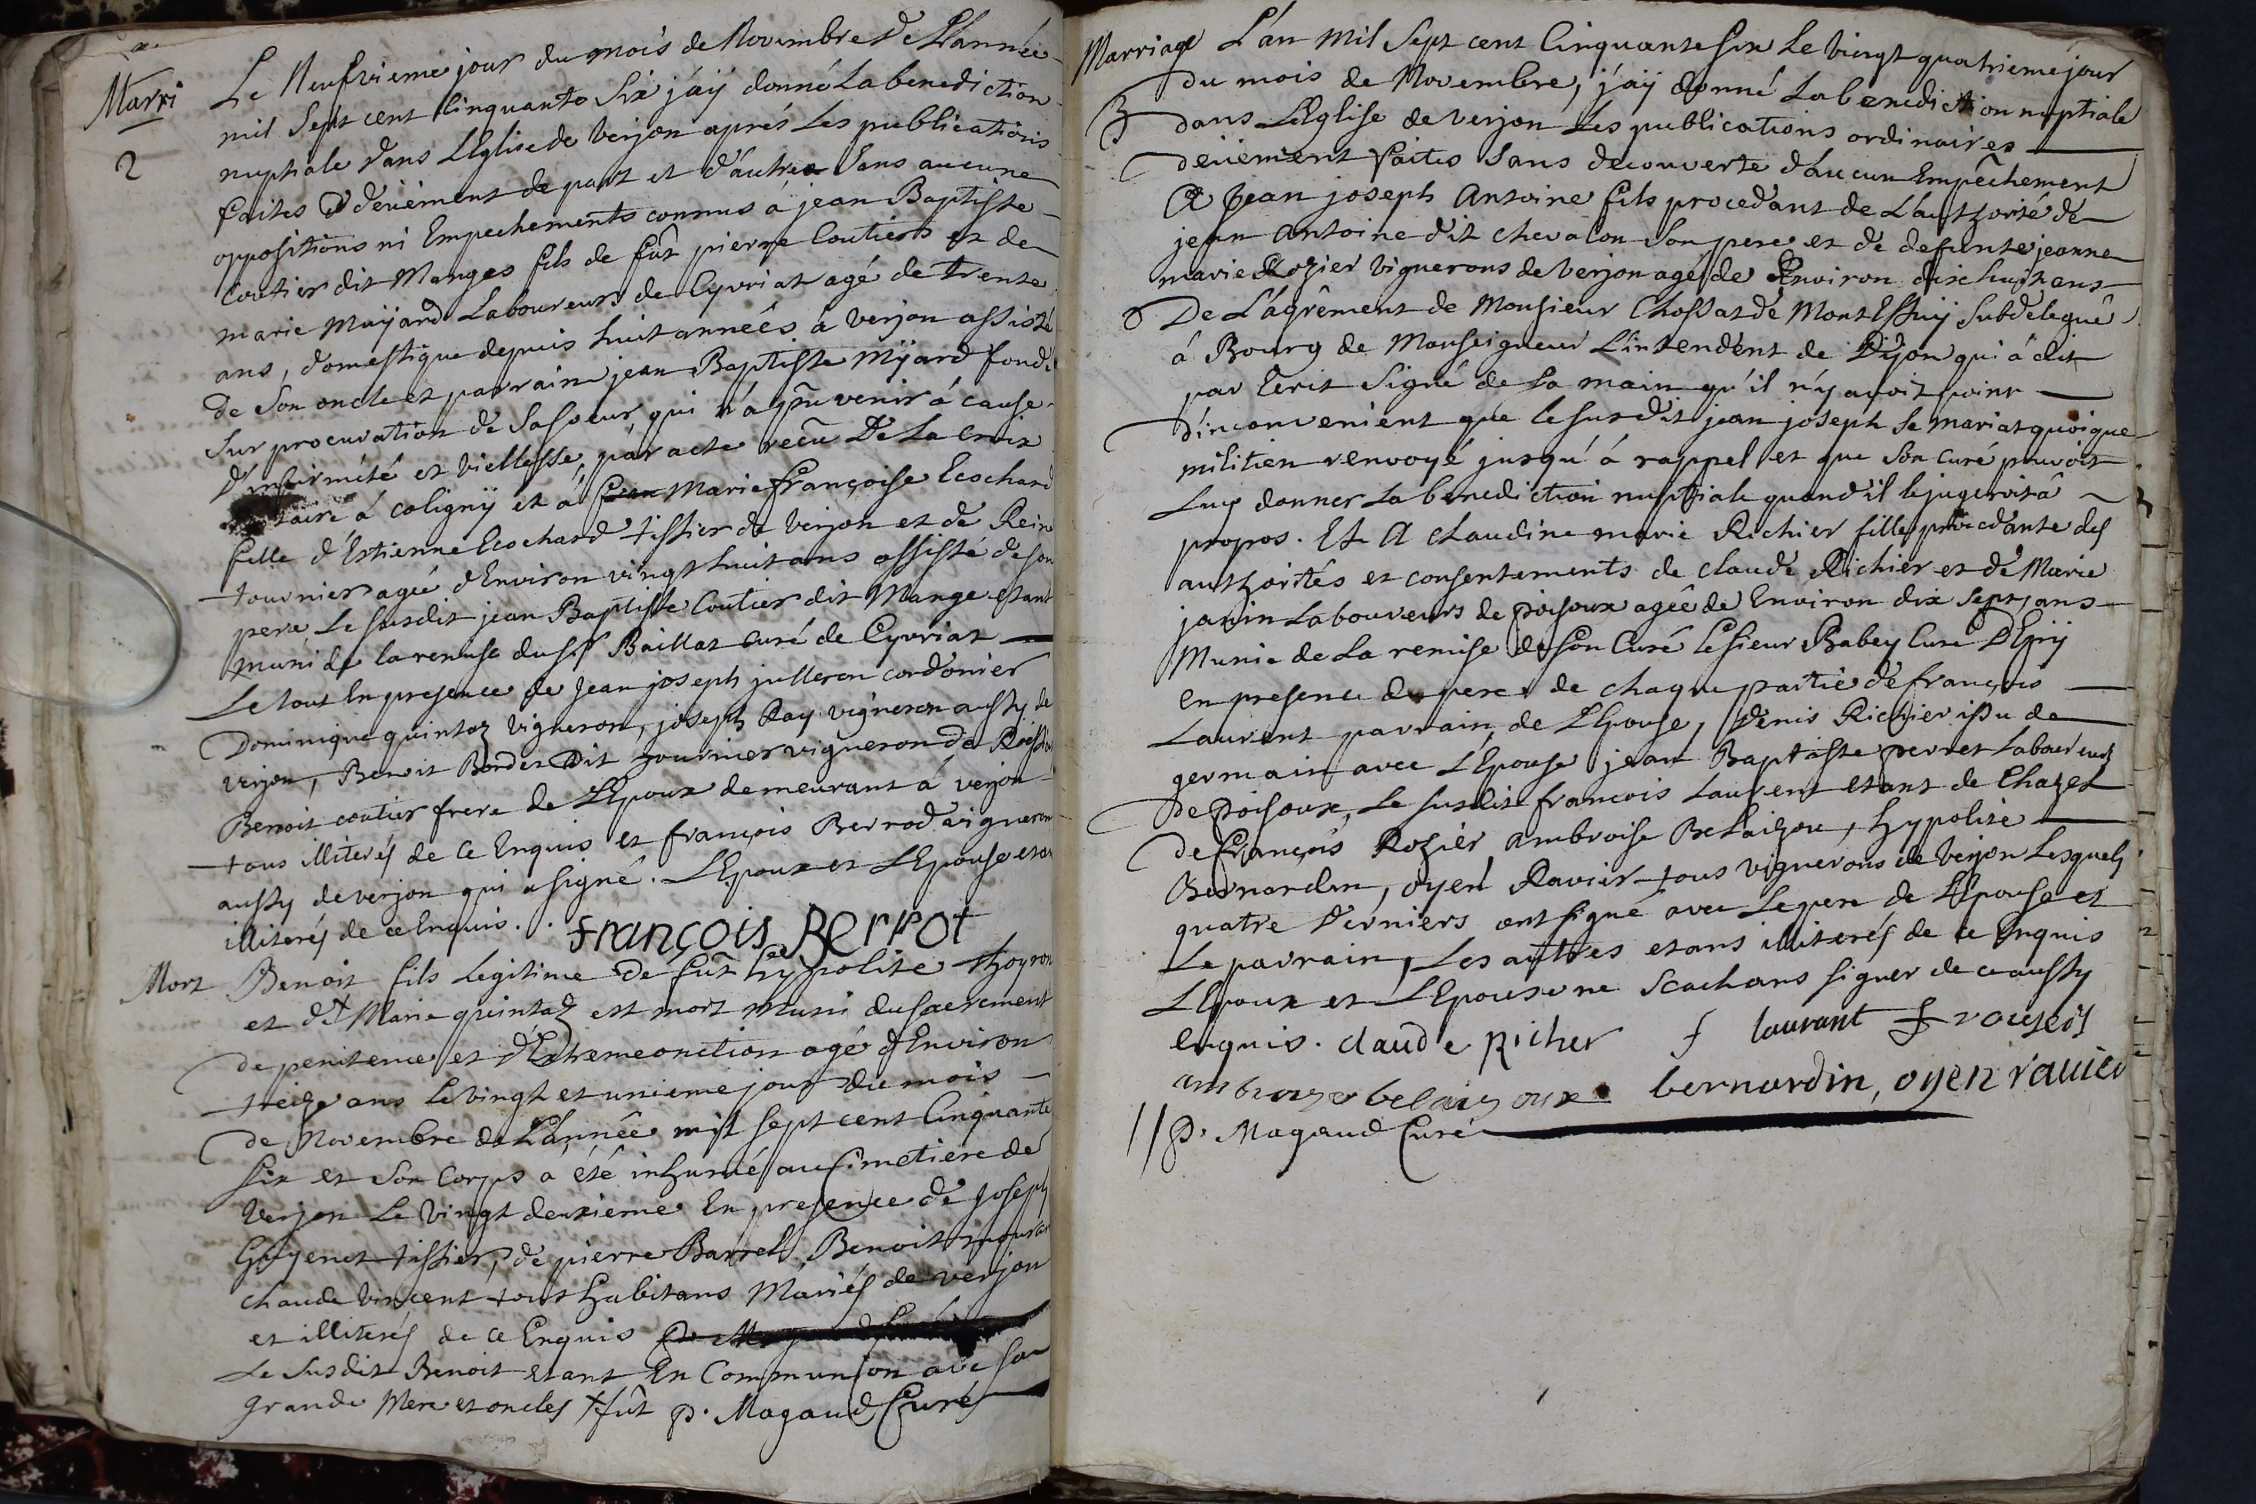 Marri
2
Le Neufvieme jour du mois de Novembre de L'année
mil Sept cent Cinquante Six j'áÿ donné La benediction
nuptiale dans L'Eglise de Verjon aprés Les publications
faites deüement de part et d'autre Sans aucune
oppositions ni Empechements connus á jean Baptiste
Coutier dit Manges fils de fût pierre Coutiers et de
marie Mÿard Laboureurs de Cyvriat agé de trente
ans, domestique depuis huit années á verjon assisté
de Son oncle et parrain jean Baptiste Mÿard fondé
Sur procuration de Sa Soeur, qui n'a pû venir á cause
d'infirmité et viellesse, par acte reçu De La Croix
á coligny et á Marie françoise Ecochard
fille d'Estienne Ecochard tissier de Verjon et de Reine
tournier agée d'Environ vingt huit ans assisté de son
pere Le susdit jean Baptiste Coutier dit Mange etant
muni de la remise du Sr Baillat curé de Cyvriat
Le tout En presence de Jean joseph julleron cordonier
Dominique quintaz vigneron, joseph Ray vigneron aussy de
verjon, Benoit Bordet Dit tournier vigneron de
Benoit coutier frere de L'Epoux demeurant á verjon
tous illiterés de Ce Enquis et françois Berrod vigneron
aussy de verjon qui a signé. L'Epoux et L'Epouse etant
illiterés de ce Enquis. . françois Berrot
Mort Benoit fils Legitime de fût hÿpolite thoyron
et d'+ Marie quintaz est mort Muni du sacrement
de penitence et d'Extremeonction agé d'Environ
treize ans Le vingt et unieme jour du mois
de Novembre de L'année mil sept cent Cinquante
Six et Son Corps a été inhumé au Cimetiere de
Verjon Le Vingt deuxieme En presence de Joseph
Guyenet tissier, de pierre Barrel, Benoit
Claude Vincent tous habitans Mariés de verjon
et illiterés de Ce Enquis
Le Susdit Benoit etant En Communion avec sa
grande Mere et oncles +fût P. Magaud Curé
Marriage
3
L'án Mil Sept cent Cinquante Six Le Vingt quatrieme jour
du mois de Novembre, j'áÿ donné La benediction nuptiale
dans L'Eglise de Verjon Les publications ordinaires
deüement faites Sans decouverte d'aucun Empêchement
A Jean joseph Antoine fils procedant de L'authorité de
jean Antoine dit chevalon Son pere et de defunte jeanne
marie Rozier Vignerons de Verjon agé de Environ dixhuit ans
De L'ágrêment de Monsieur Chossat de Mont Essuy Subdelegué
á Bourg de Monseigneur L'intendent de Dijon qui á dit
par Ecrit Signé de Sa main qu'il n'y avoit point
d'inconvenient que le susdit jean joseph Se mariat quoique
militien renvoyé jusqu'á rappel et que Son Curé pouvoit
Luy donner La benediction nuptiale quand il le jugeroit á
propos. Et A Claudine marie Richier fille procedante des
authorités et consentements de claude Richier et de Marie
janin Laboureurs de poisoux agée de Environ dix Sept ans
Munie de La remise de Son Curé Le sieur Babey Curé D'Epÿ
en presence du pere de chaque partie de françois
Laurent parrain de L'Epouse, Denis Richier issu de
germain avec L'Epouse jean Baptiste perret Laboureurs
de poisoux, Le susdit françois Laurent etant de Chazel
de françois Rozier Ambroise Belaizou, hypolite
Bernardin, oyen Ravier tous vignerons de Verjon Lesquels
quatre Derniers ont signé avec Le pere de L'Epouse et
Le parrain, Les autres etans illiterés de ce Enquis
L'Epoux et L'Epouse ne Scachans Signer de ce aussy
enquis. claude Richer f laurant
bernardin, oyen ravier
P. Magaud Curé